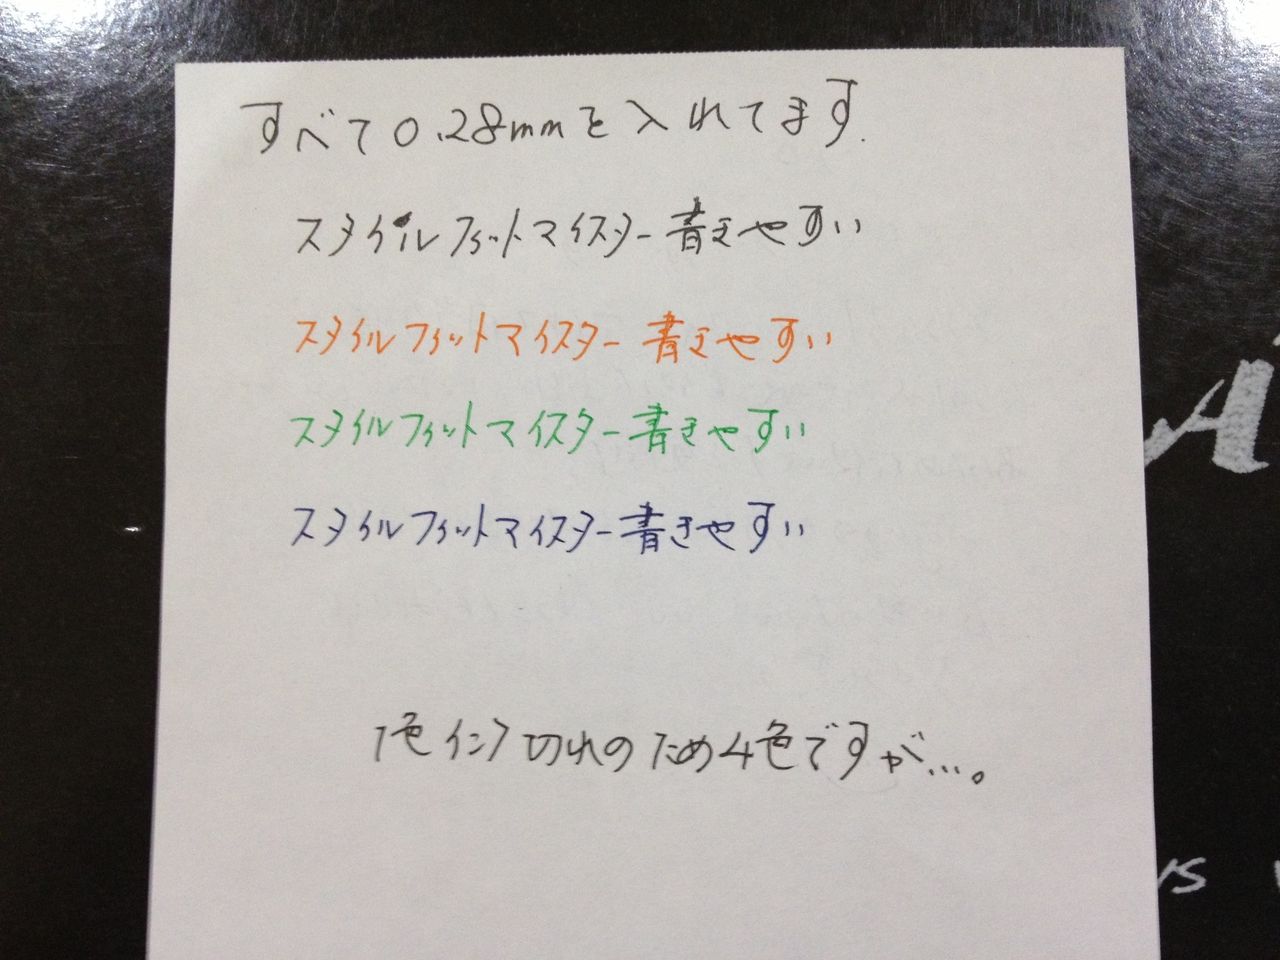 すべて0.28mmを入れてます.
スタイルフィットマイスター書きやすい
スタイルフィットマイスター書きやすい
スタイルフィットマイスター書きやすい
スタイルフィットマイスター書きやすい
1色インク切れのため4色ですが…。